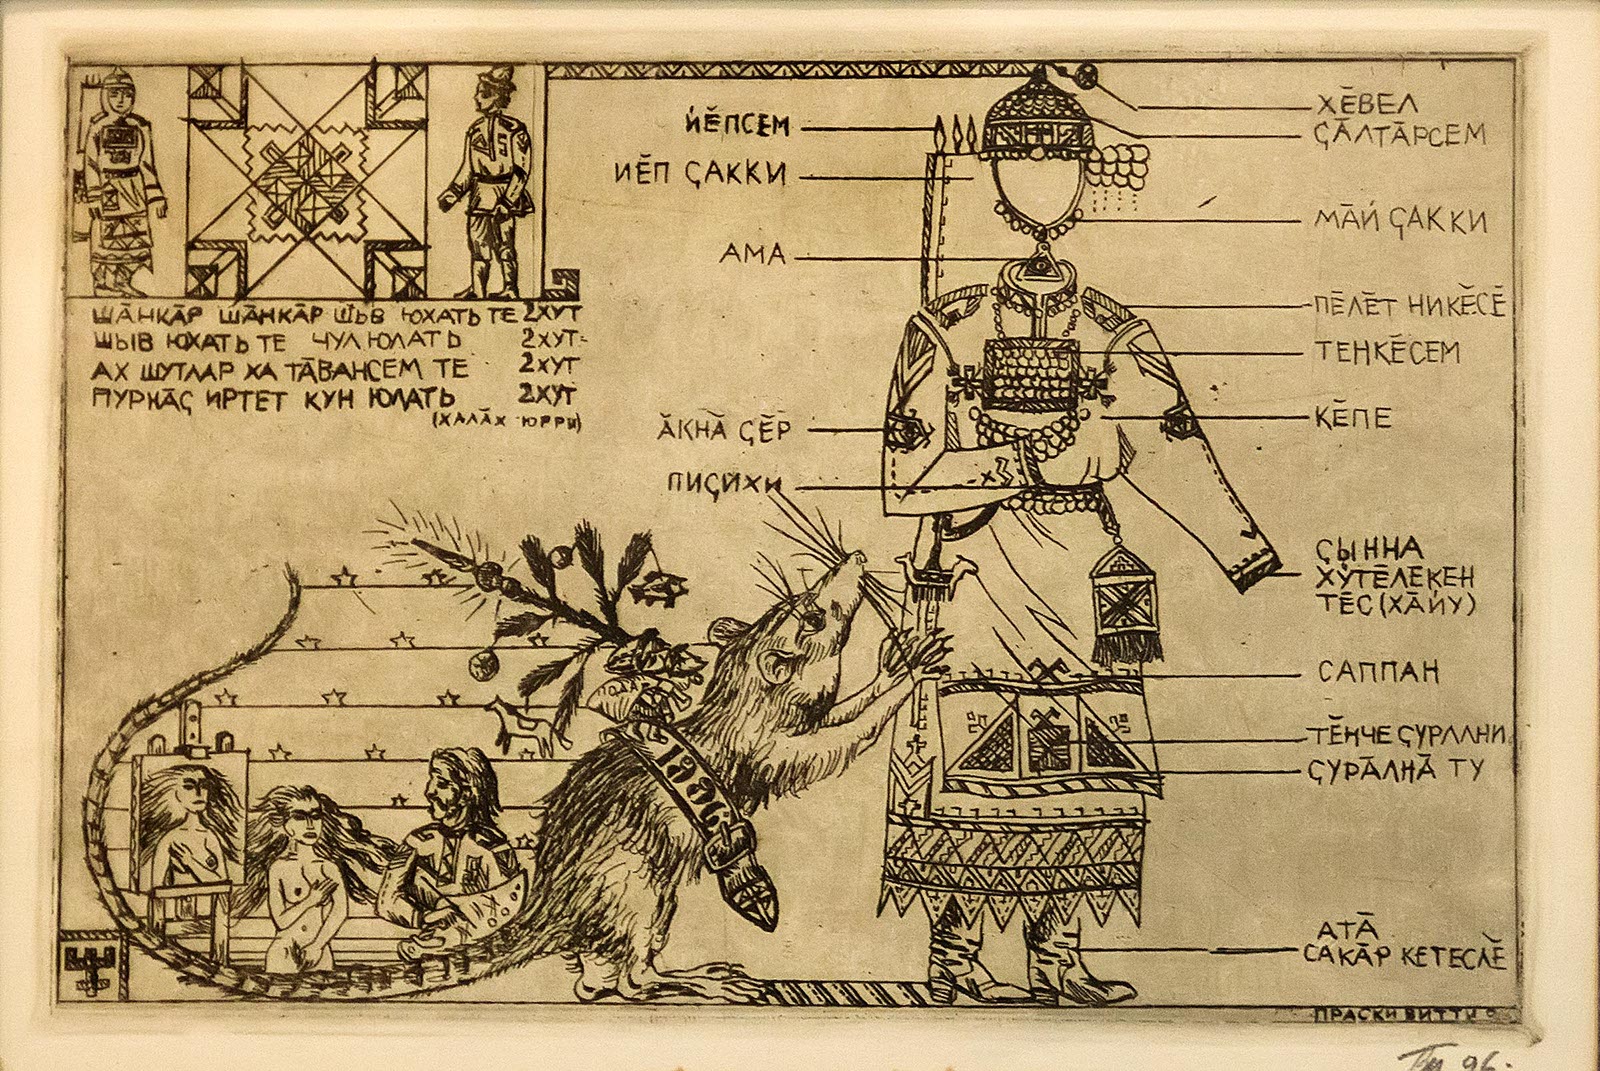 ШĀНКĀР ШĀНКĀР ШЫВ ЮХАТЬ ТЕ 2ХУТ
ШЫВ ЮХАТЬ ТЕ ЧУЛ ЮЛАТЬ 2ХУТ
АХ ШУТЛАР ХА ТĀВАНСЕМ ТЕ 2ХУТ
ПУРНĀÇ ИРТЕТ КУН ЮЛАТЬ 2ХУТ
(ХАЛĀХ ЮРРИ)
ЙӖПСЕМ
ИӖП ÇАККИ
АМА
ĀКНĀ ÇӖР
ПИÇИХИ
ХӖВЕЛ
ÇĀЛТĀРСЕМ
МĀЙ ÇАККИ
ПӖЛӖТ НИКӖСӖ
ТЕНКӖСЕМ
КӖПЕ
ÇЫННА
ХӲТӖЛЕКЕН
ТӖС (ХĀЙУ)
САППАН
ТӖНЧЕ ÇУРАЛНИ
ÇУРĀЛНĀ ТУ
АТĀ
САКĀР КЕТЕСЛӖ
1996
ПРАСКИ ВИТТИ
96.